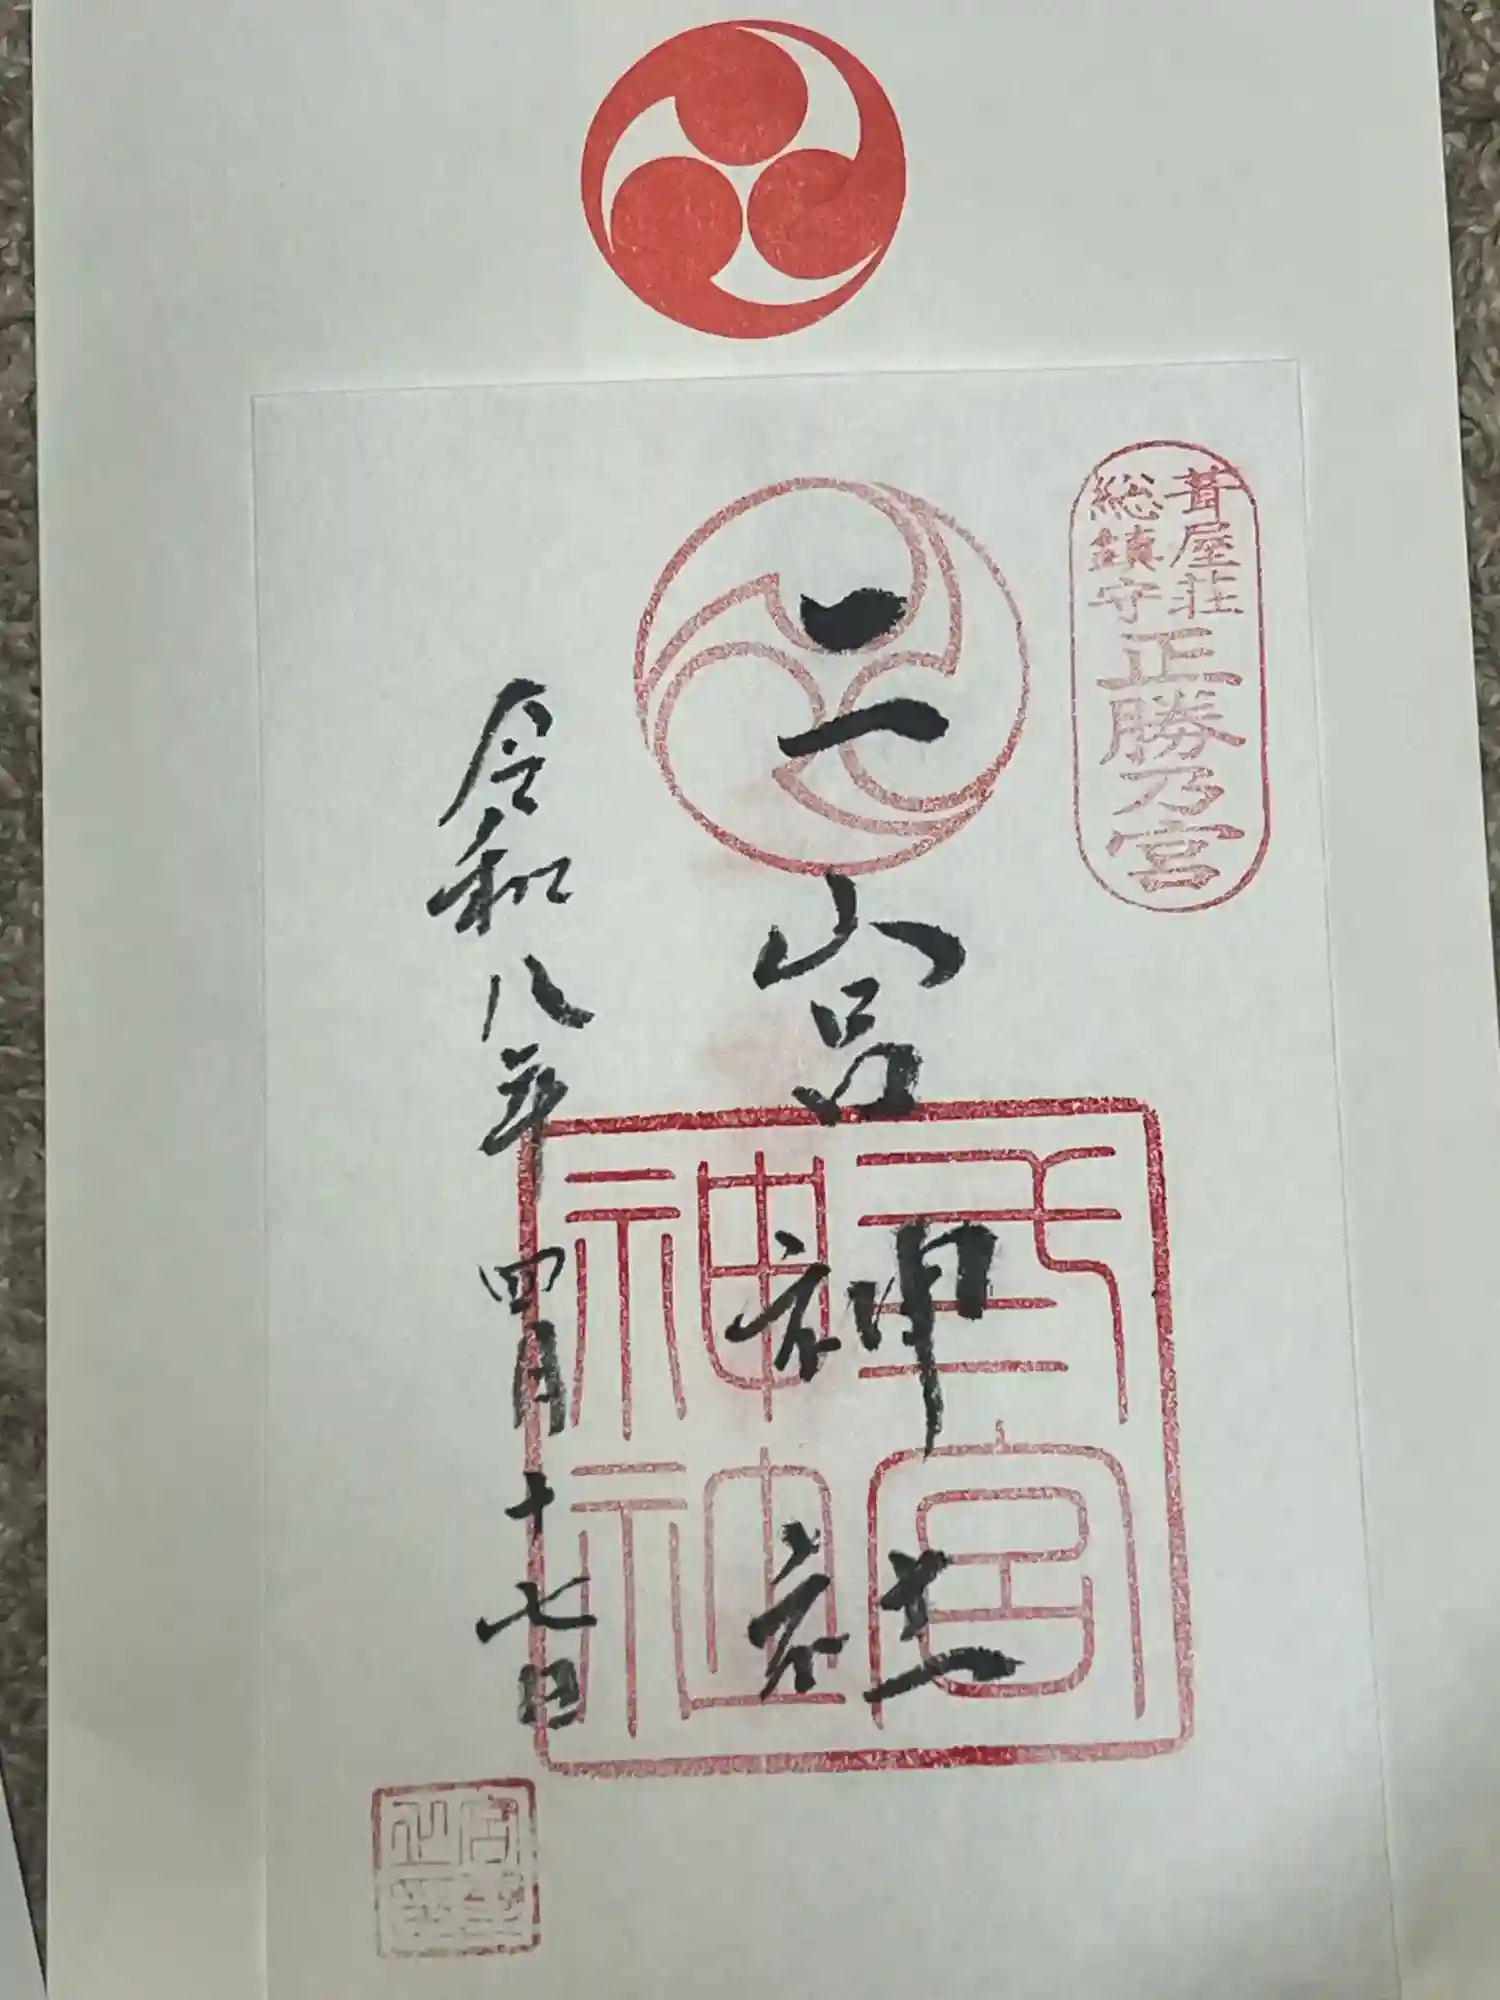 葺屋荘
総鎮守
正勝乃宮
二宮神社
令和八年四月十七日